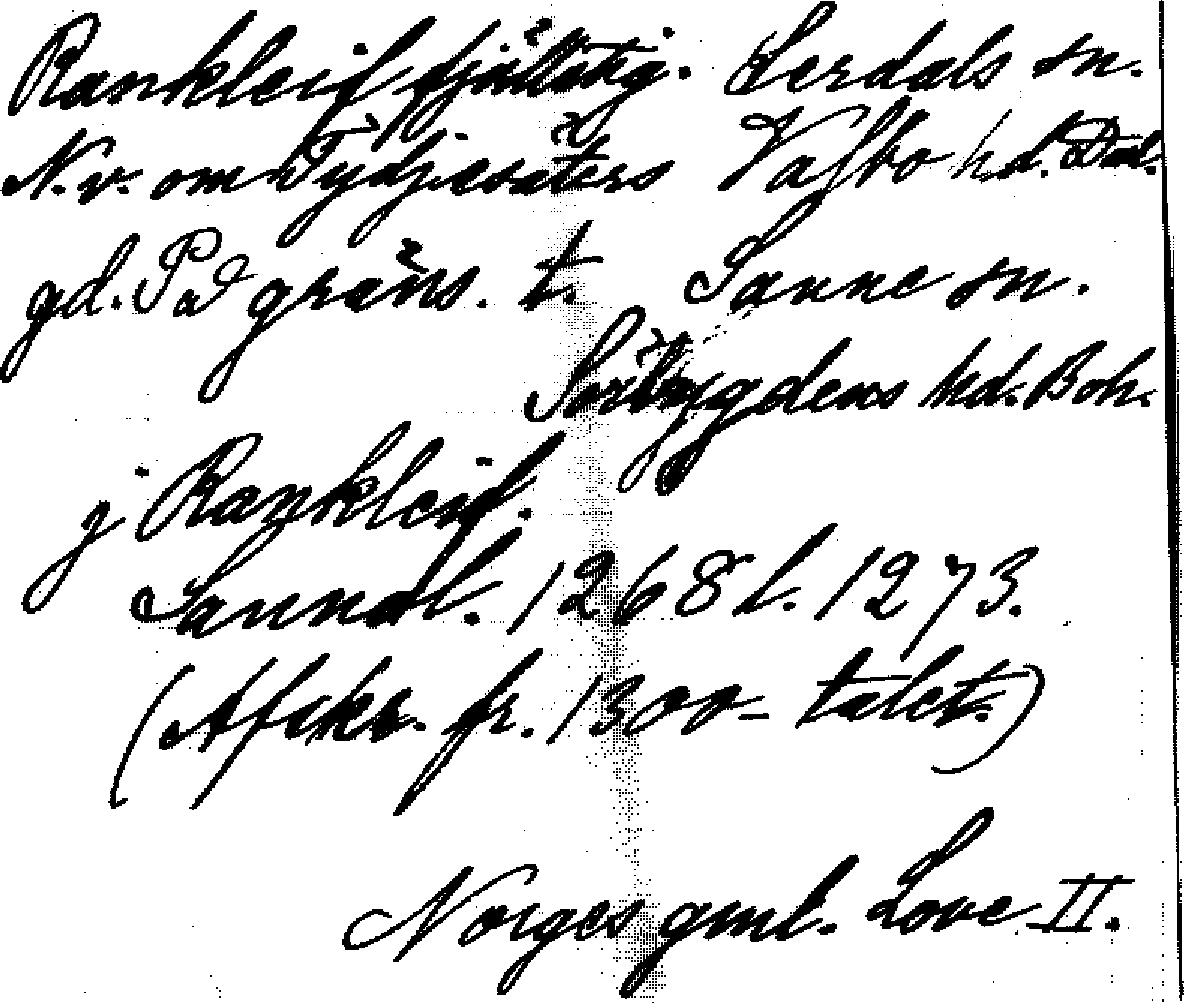 Rankleif fjällstig. Lerdals sn.
N.v. om Tydjesäters Valbo hd. Dal.
gd. På gräns. t. Sanne sn.
Sörbygdens hd. Boh.
j Rankleif.
Sannol. 1268 l. 1273.
(Afskr. fr. 1300-talet.)
Norges gml. Love II.